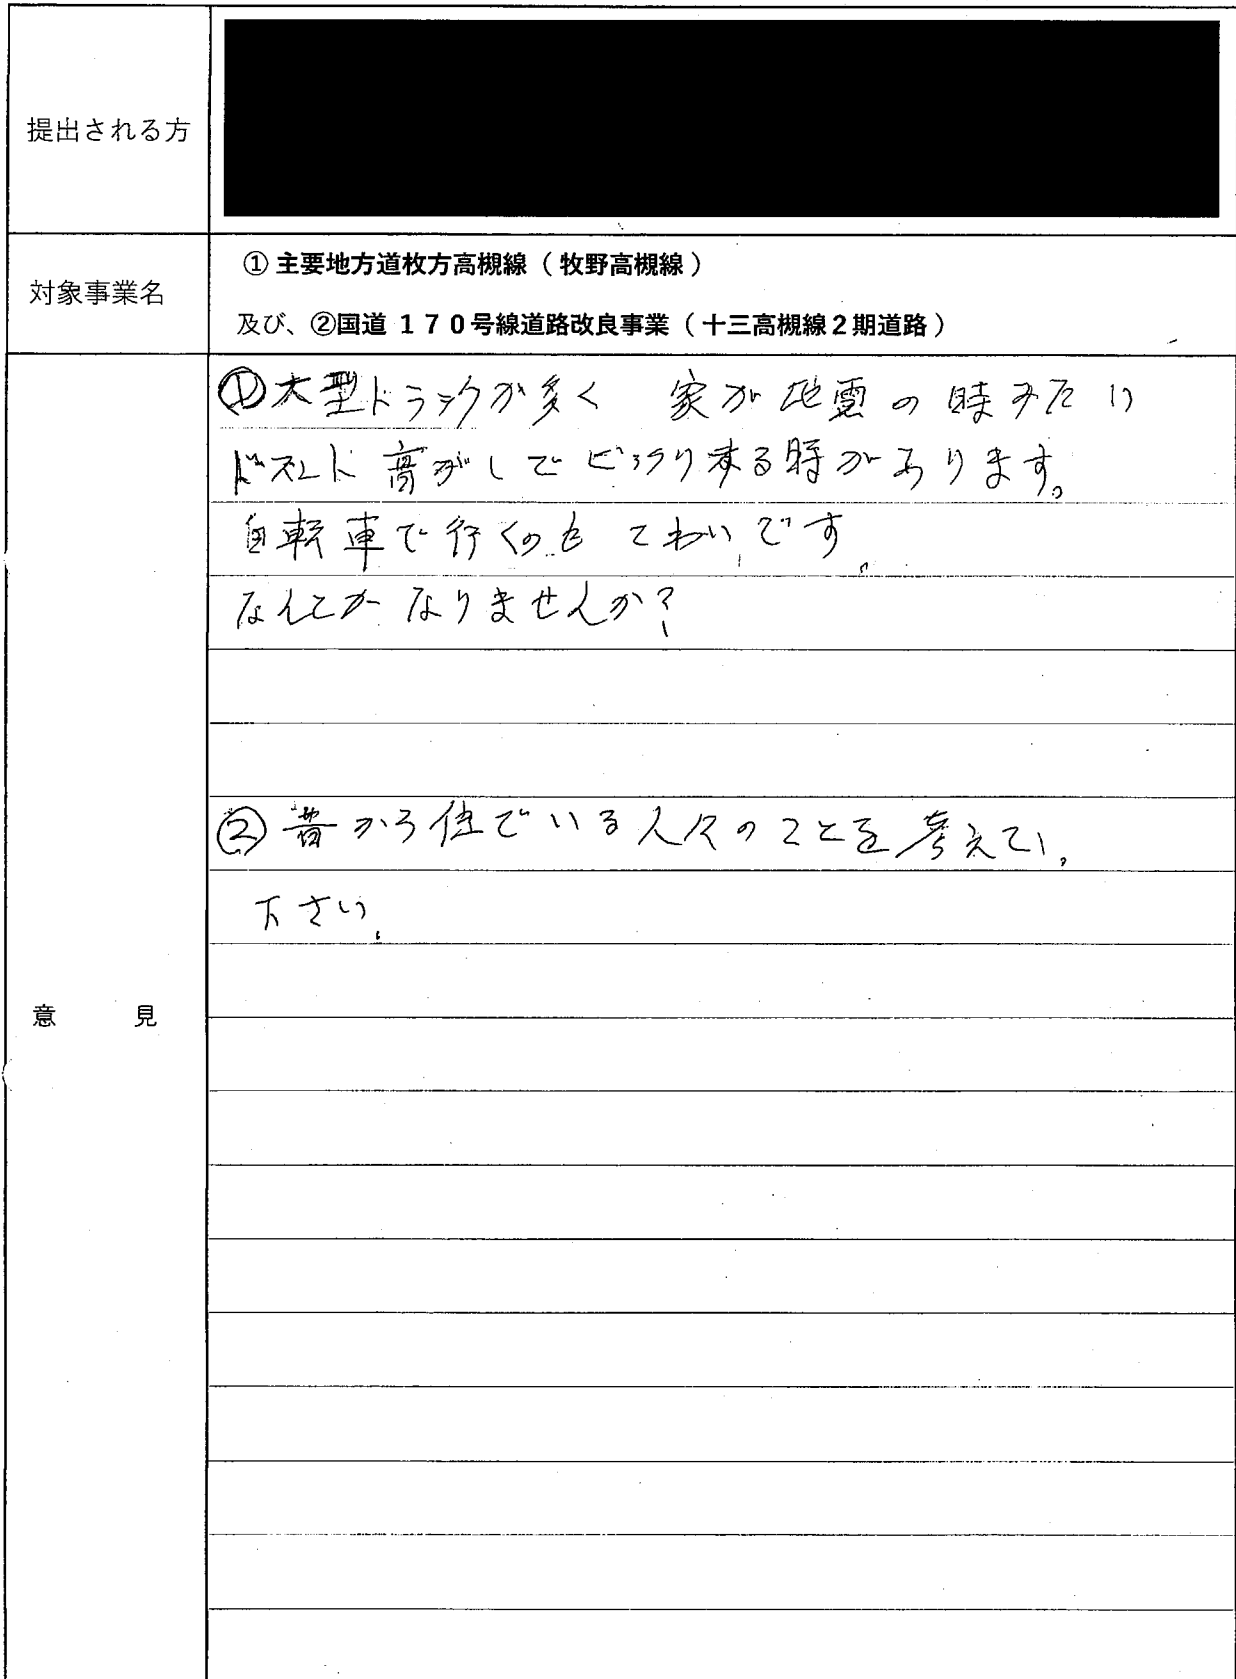 提出される方
対象事業名
① 主要地方道枚方高槻線（牧野高槻線）
及び、②国道１７０号線道路改良事業（十三高槻線２期道路）
意見
①大型トラックが多く 家が地震の時みたい
ドスンと音がしてびっくりする時があります。
自転車で行くのもこわいです。
なんとかなりませんか？
②昔から住でいる人々のことを考えて
下さい。